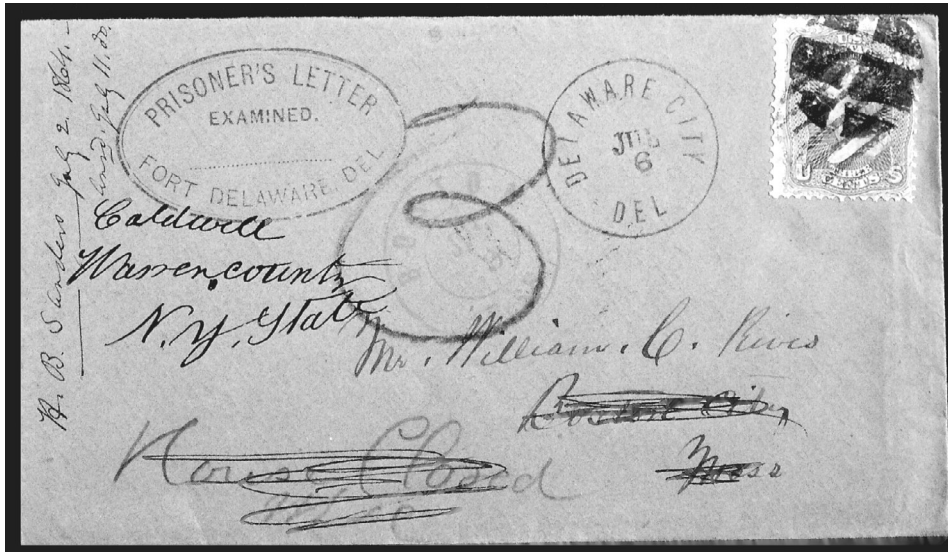 H. B. Sanders July 2. 1864.
July 11. 64.
PRISONER'S LETTER
EXAMINED.
FORT DELAWARE, DEL
DELAWARE CITY
JUL
6
DEL
U S
3
CENTS
Caldwell
Warren county
N. Y. State
Mr. William. C. Rives
Boston City
Mass
House Closed